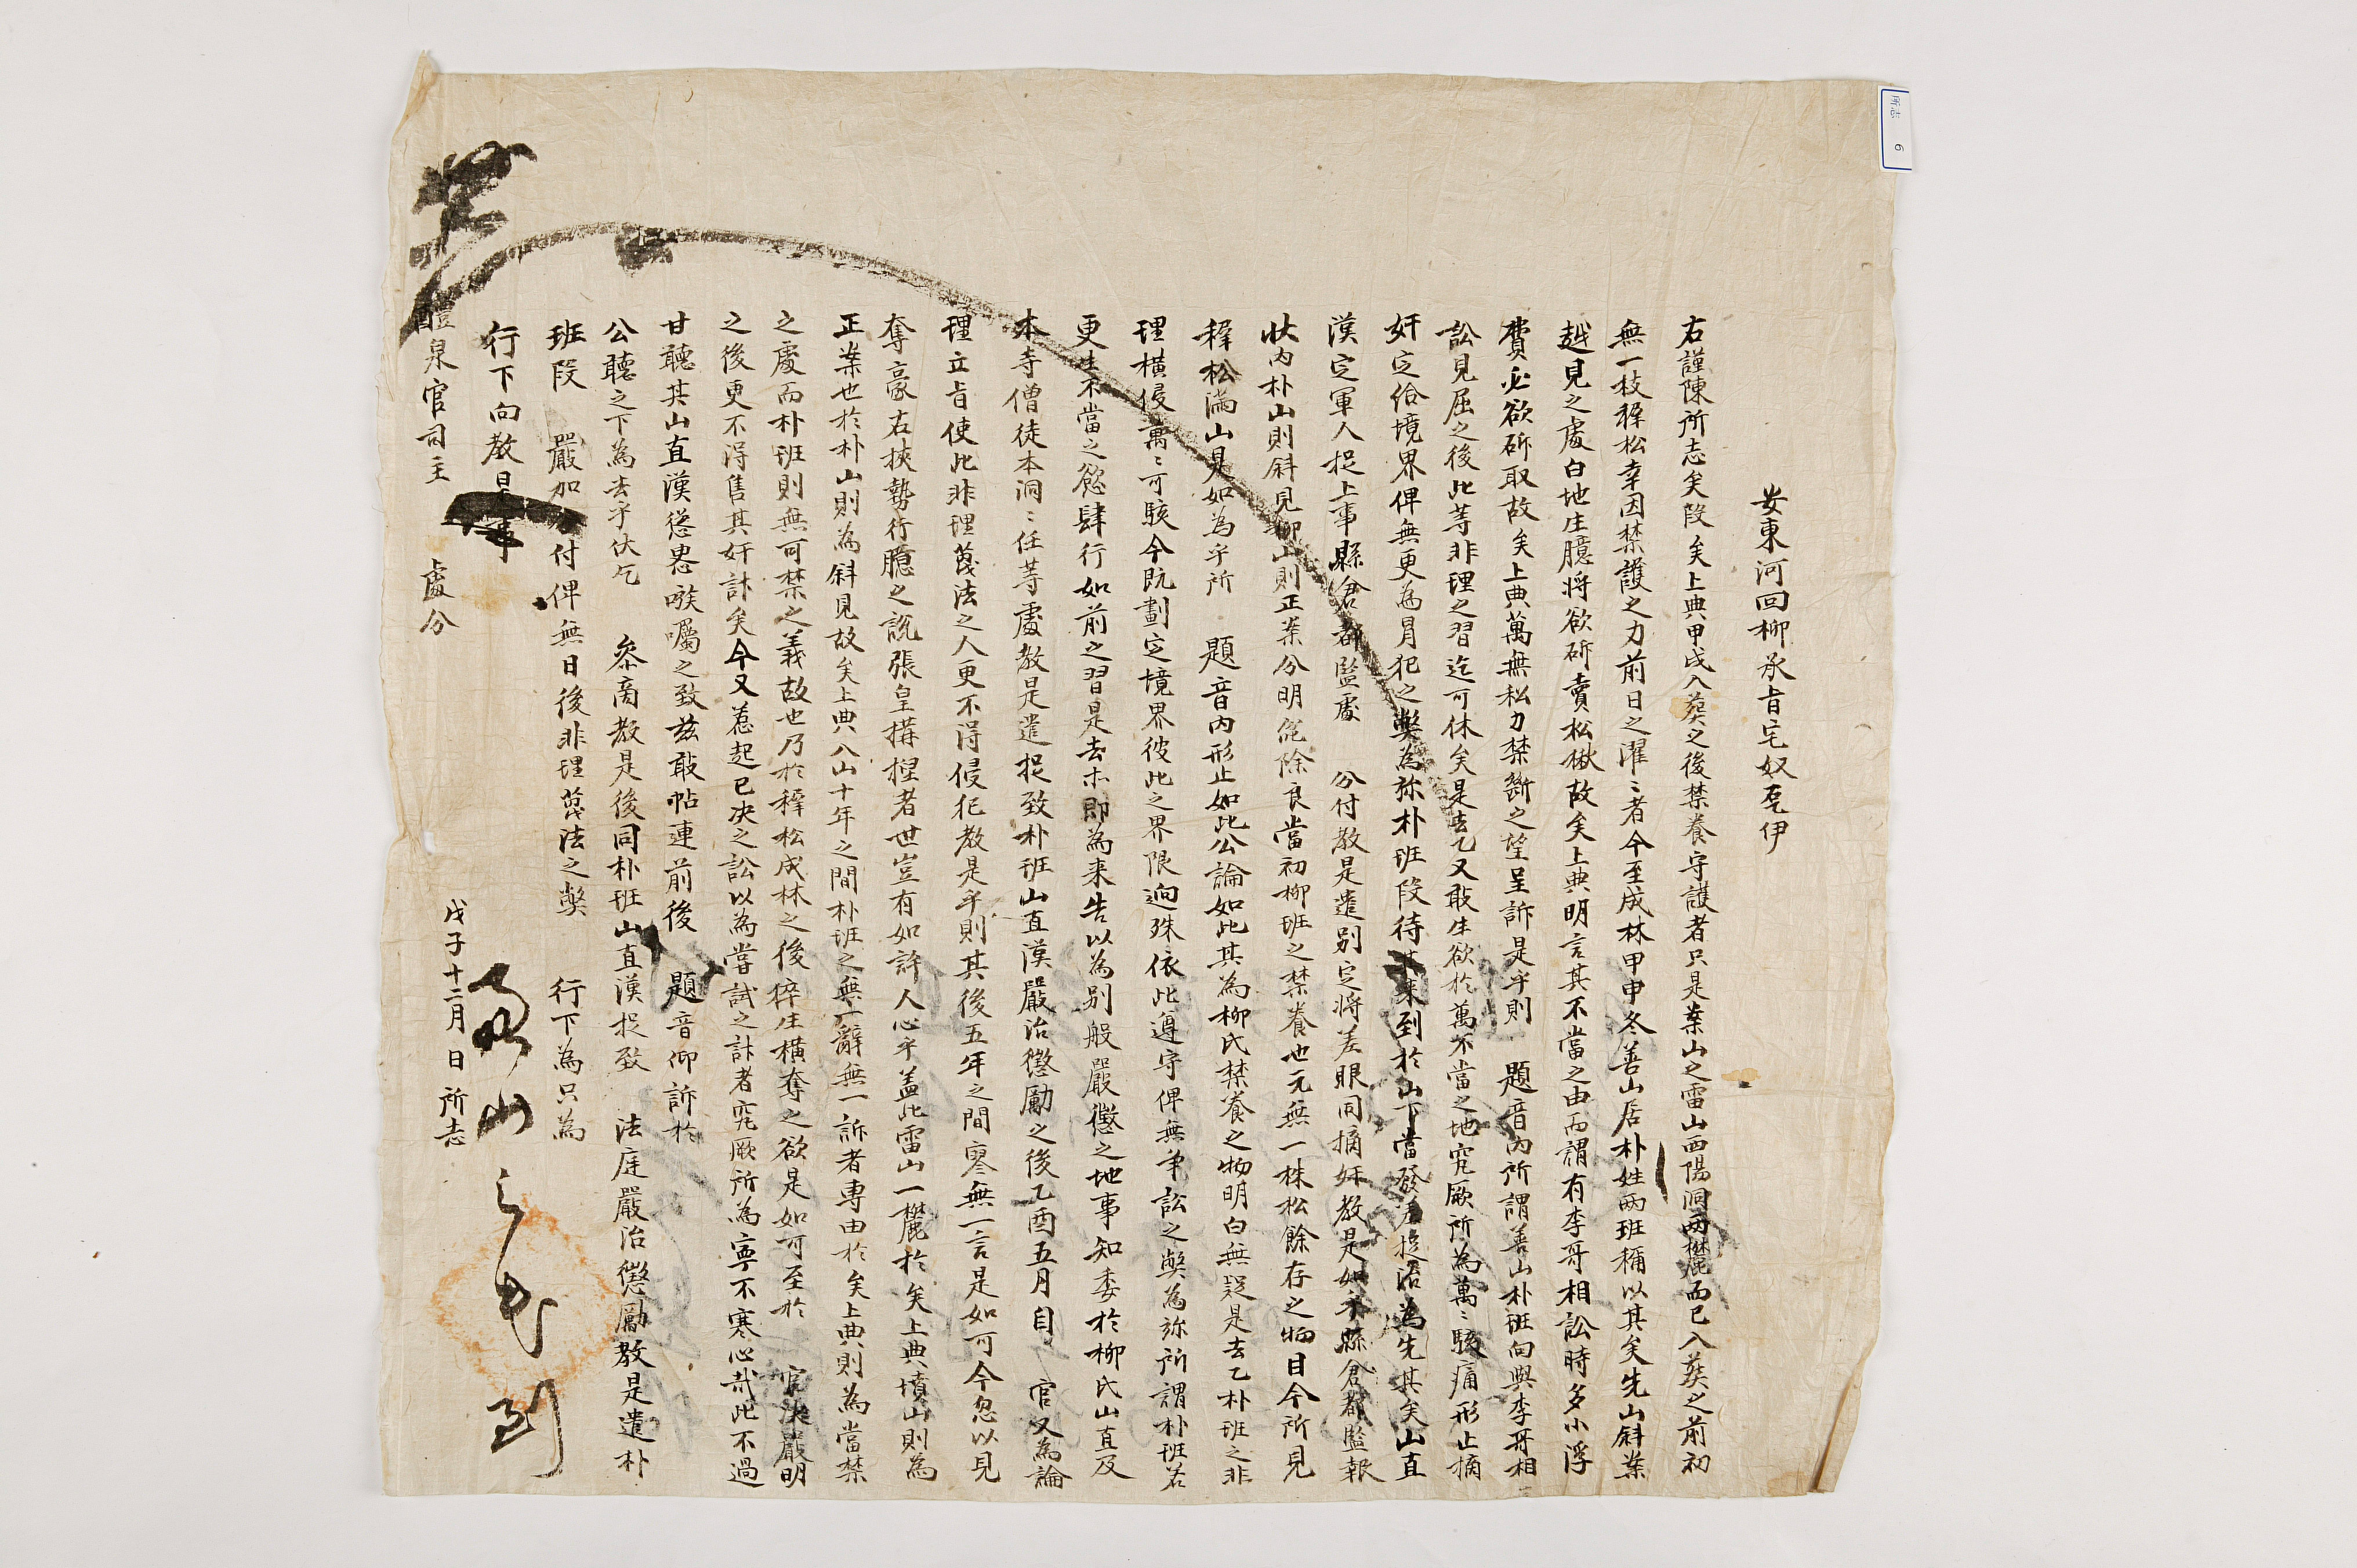 安東河回柳承旨宅奴夗伊
右謹陳所志矣段矣上典甲戌入葬之後禁養守護者只是案山之雷山西陽洞兩麓而已入葬之前初
無一枝穉松幸因禁護之力前日之濯〻者今至成林甲申冬善山居朴姓兩班稱以其矣先山斜案
越見之處白地生臆將欲斫賣松楸故矣上典明言其不當之由而謂有李哥相訟時多小浮
費必欲斫取故矣上典萬無私力禁斷之望呈訴是乎則 題音內所謂善山朴班向與李哥相
訟見屈之後此等非理之習迄可休矣是去乙又敢生欲於萬不當之地究厥所為萬〻駭痛形止摘
奸定給境界俾無更為冒犯之弊為旀朴班段待其來到於山下當發差捉治為先其矣山直
漢定軍人捉上事縣倉都監處 分付教是遣別定將差眼同摘奸教是如乎縣倉都監報
狀內朴山則斜見柳山則正案分明㐣除良當初柳班之禁養也元無一株松餘存之物目今所見
穉松滿山是如為乎所 題音內形止如此公論如此其為柳氏禁養之物明白無疑是去乙朴班之非
理橫侵萬〻可駭今旣劃定境界彼此之界限逈殊依此遵守俾無爭訟之弊為旀所謂朴班若
更生不當之慾肆行如前之習是去等卽為來告以為別般嚴懲之地事知委於柳氏山直及
本寺僧徒本洞〻任等處教是遣捉致朴班山直漢嚴治懲勵之後乙酉五月自 官又為論
理立旨使此非理蔑法之人更不得侵犯教是乎則其後五年之間寥無一言是如可今忽以見
奪豪右挾勢行臆之說張皇搆捏者世豈有如許人心乎盖此雷山一麓於矣上典墳山則為
正案也於朴山則為斜見故矣上典八山十年之間朴班之無一辭無一訴者專由於矣上典則為當禁
之處而朴班則無可禁之義故也乃於穉松成林之後猝生橫奪之欲是如可至於 官決嚴明
之後更不得售其奸計矣今又惹起已決之訟以為嘗試之計者究厥所為寧不寒心哉此不過
甘聽其山直漢慫恿嗾囑之致玆敢帖連前後 題音仰訴於
公聽之下為去乎伏乞 參商教是後同朴班山直漢捉致 法庭嚴治懲勵教是遣朴
班段 嚴加分付俾無日後非理蔑法之弊 行下為只為
行下向教是事
醴泉官司主 處分
戊子十二月 日 所志